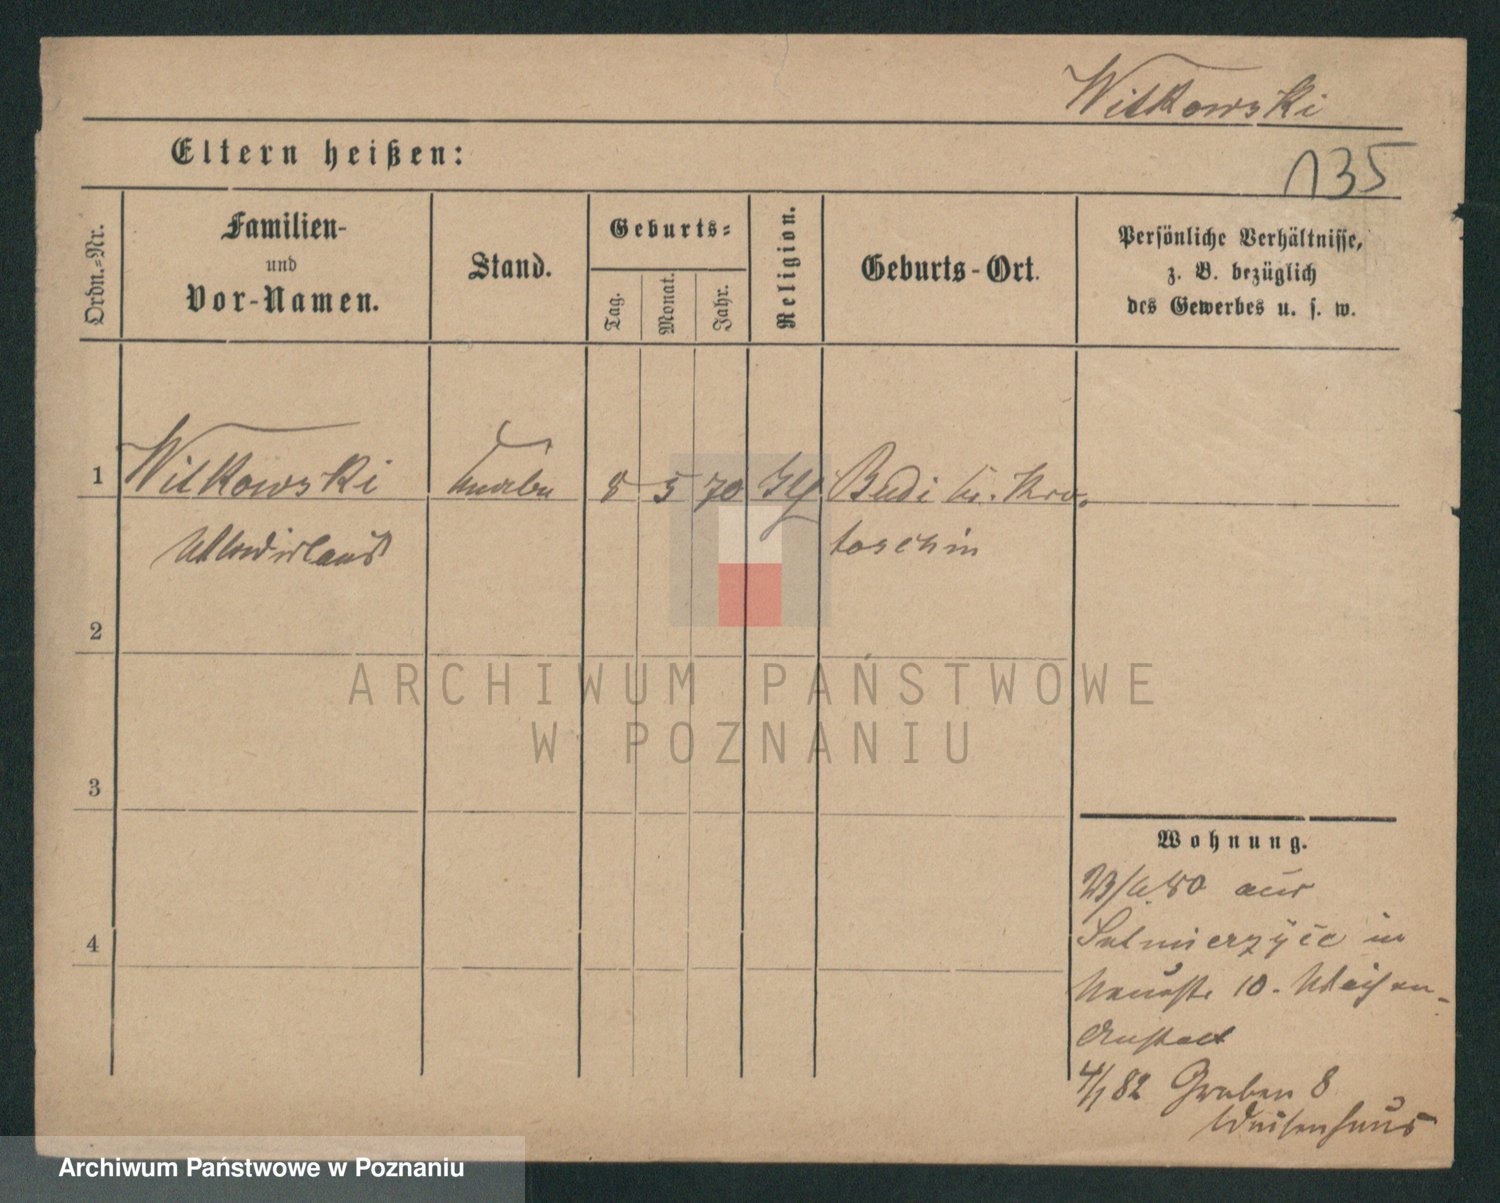 Witkowski
Eltern heißen:
135
Ordn.-Nr.
Familien-
und
Vor-Namen.
Stand.
Geburts-
Tag.
Monat.
Jahr.
Religion.
Geburts-Ort.
Persönliche Verhältnisse,
z. B. bezüglich
des Gewerbes u. s. w.
1 Witkowski 8 5 70 Budi Kr. Kro-
Wladislaus toschin
2
ARCHIWUM PAŃSTWOWE
W POZNANIU
3
Wohnung.
80 aus
Sulmierzyce in
Neustr. 10. Waisen-
Anstalt
4
4/1 82 Graben 8
Waisenhaus
Archiwum Państwowe w Poznaniu